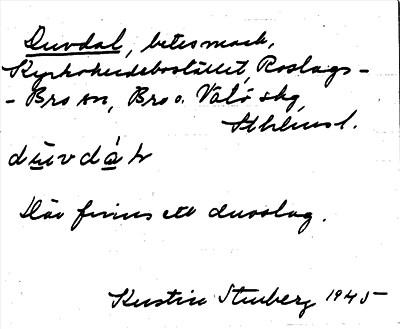 Duvdal, betesmark,
Kyrkoherdebostället, Roslags-
- Bro sn, Bro o. Vätö skg,
Sthlms l.
dūvdà̱l
Där finns ett duvslag.
Kerstin Stenberg 1945